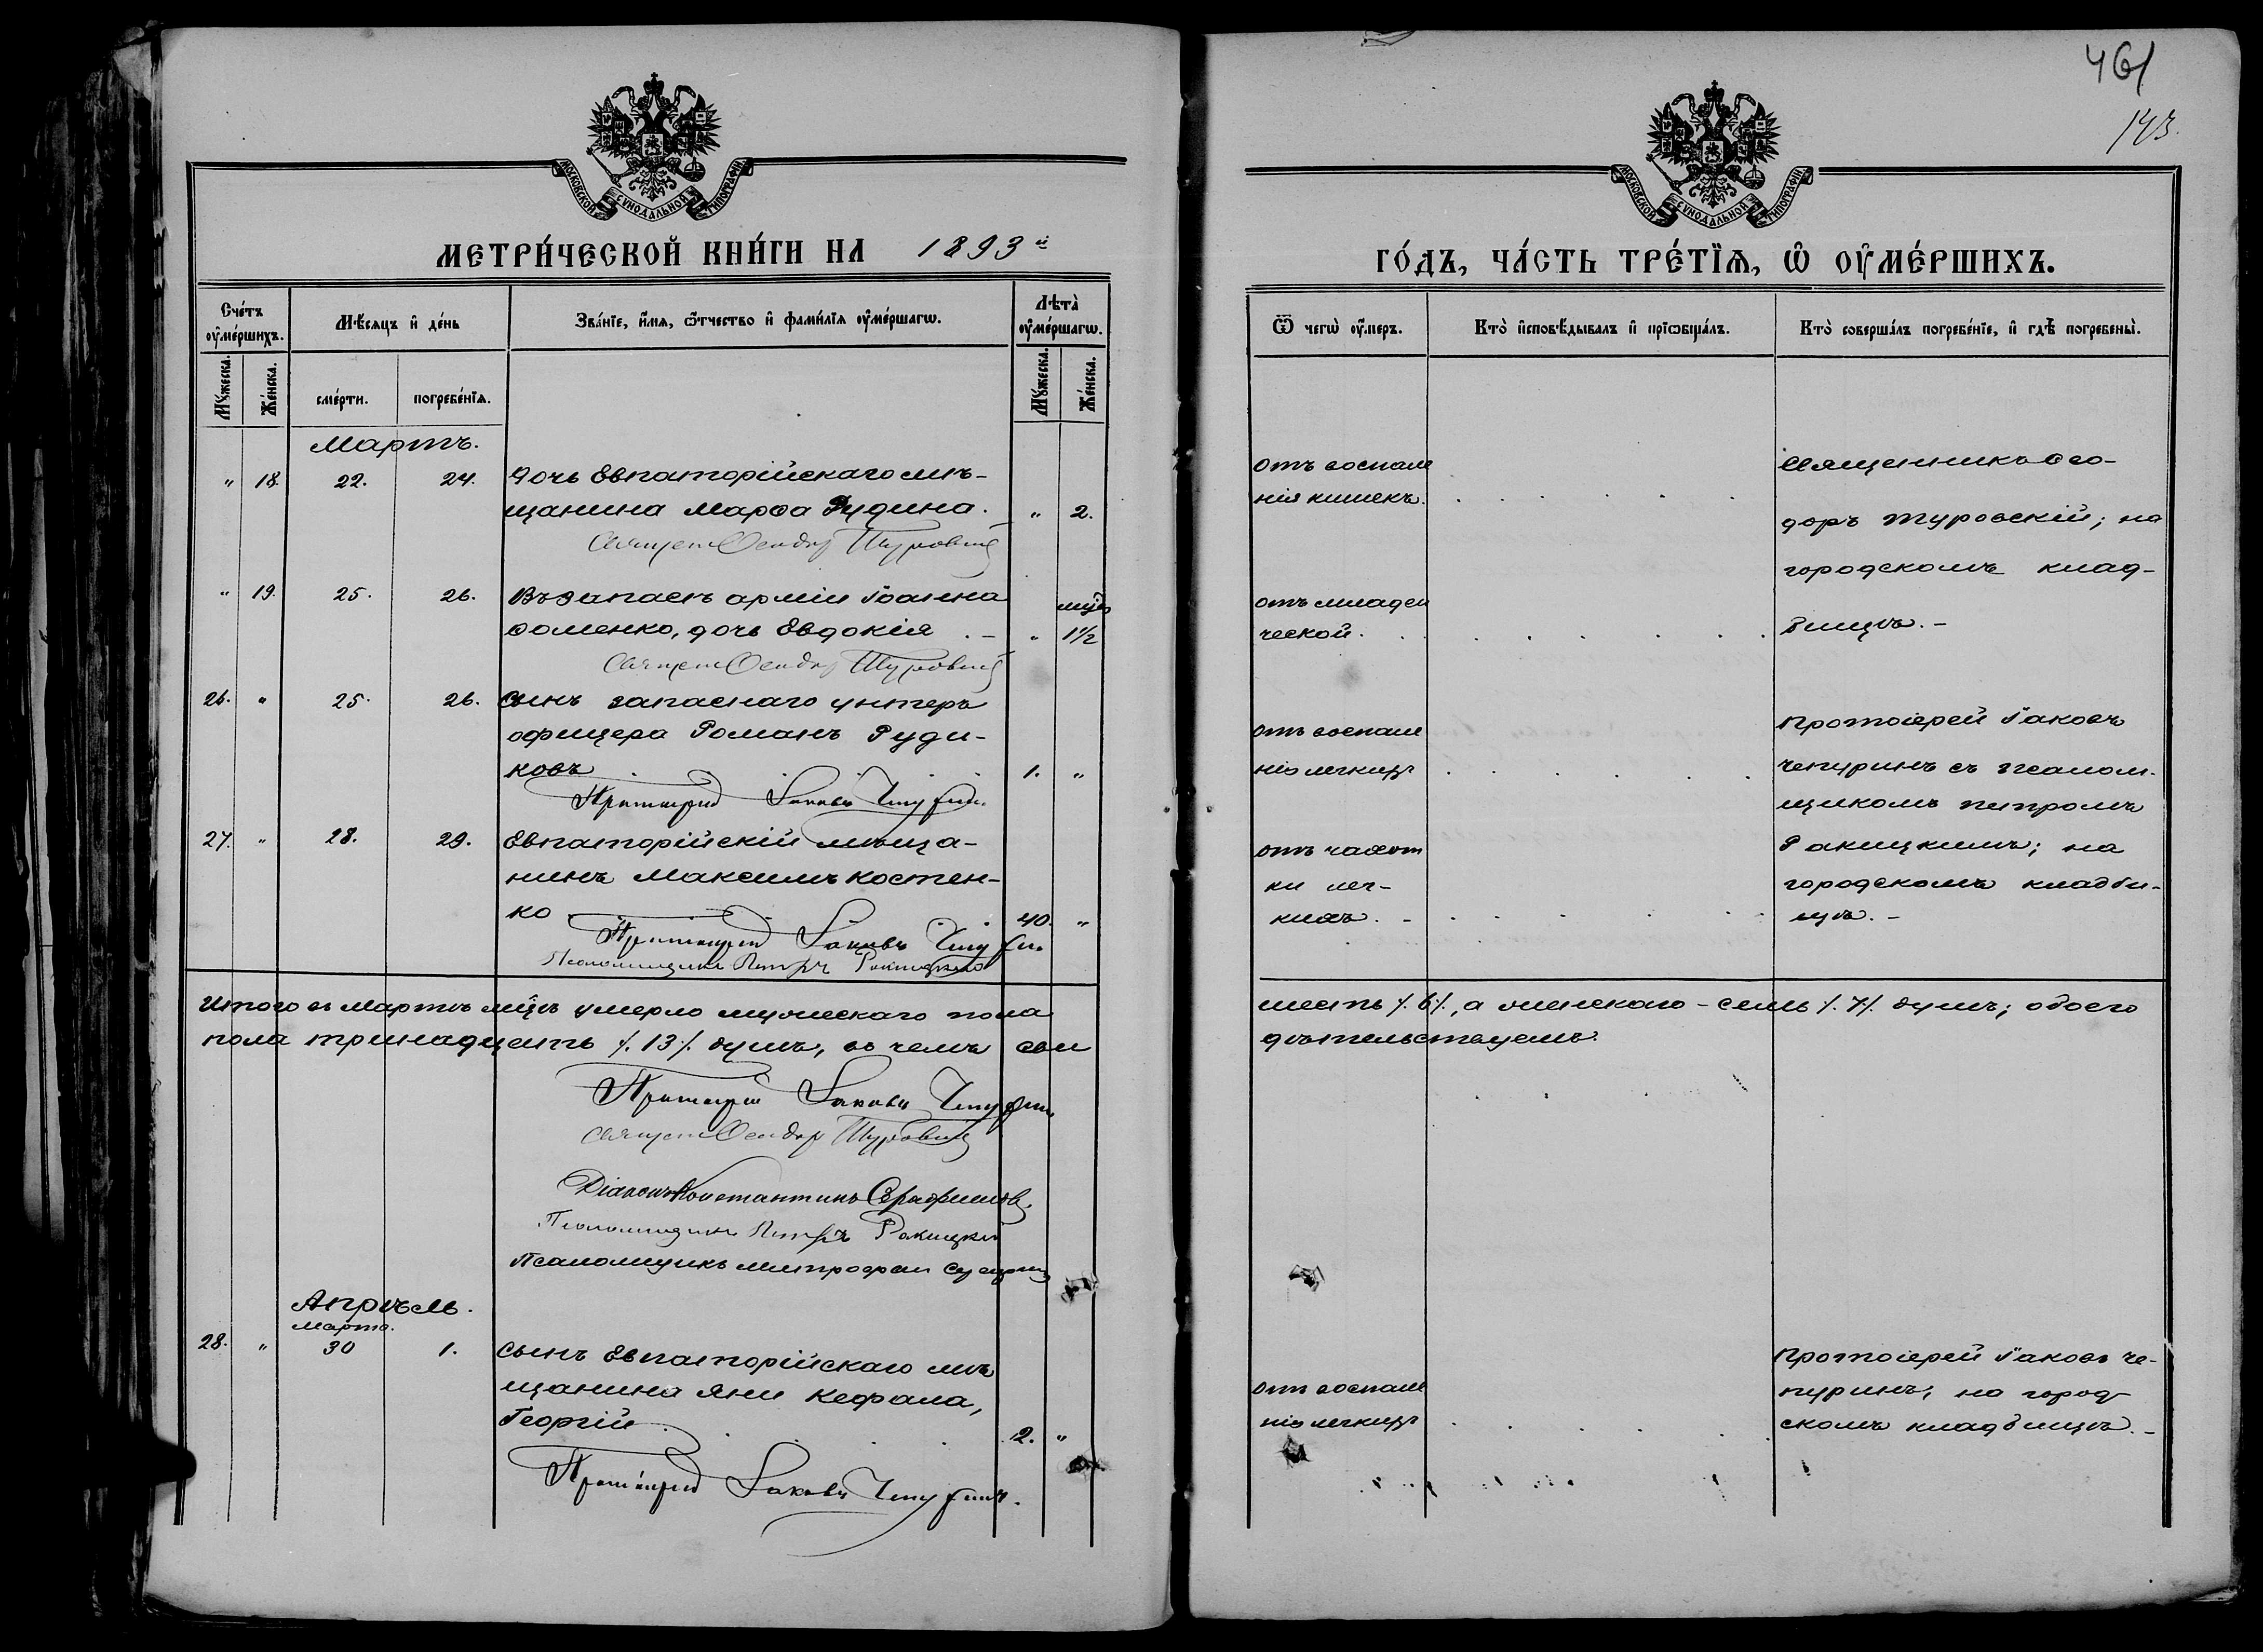 461
143.
МОСКОВСКОЙ СУНОДАЛЬНОЙ ТИПОГРАФІИ
МОСКОВСКОЙ СУНОДАЛЬНОЙ ТИПОГРАФІИ
МЕТРИ́ЧЕСКОЙ КНИ́ГИ НА 1893й
ГО́ДЪ, ЧА́СТЬ ТРЕ́ТЇѦ, Ѡ҆ ОУ҆МЕ́РШИХЪ.
Сче́тъ оу҆ме́ршихъ.
Мѣ́сяцъ и҆ де́нь
Зва́нїе, и҆́мѧ, ѻ҆́тчество и҆ фами́лїѧ оу҆ме́ршагѡ.
Лѣта̀ оу҆ме́ршагѡ.
Ѿ чегѡ̀ оу҆́меръ.
Кто̀ и҆сповѣ́дывалъ и҆ прїѡбща́лъ.
Кто̀ соверша́лъ погребе́нїе, и҆ гдѣ̀ погребены̀.
Мꙋ́жеска.
Же́нска.
сме́рти.
погребе́нїѧ.
Мꙋ́жеска.
Же́нска.
Мартъ.
" 18. 22. 24. Дочь Евпаторійскаго мѣ-
щанина Марѳа Рудина. " 2.
Священ Ѳеодор Туровскій
отъ воспале
нія кишекъ.
Священникъ Ѳео-
доръ Туровскій; на
городскомъ клад-
бищѣ.-
" 19. 25. 26. Въ запасѣ арміи Іоанна
Ѳоменко, дочь Евдокія . - " мцъ 1½
Священ Ѳеодор Туровскій
отъ младен
ческой.
26. " 25. 26. Сынъ запаснаго унтеръ
офицера Романъ Руди-
ковъ 1. "
Протоіерей Іаковъ Чепуринъ
отъ воспале
нія легкихъ
Протоіерей Іаковъ
Чепуринъ съ псалом-
щикомъ Петромъ
Ракицкимъ; на
городскомъ кладби-
щѣ.-
27. " 28. 29. Евпаторійскій мѣща-
нинъ Максимъ Костен-
ко 40. "
Протоіерей Іаковъ Чепурин
Псаломщикъ Петръ Ракицкій
отъ чахот
ки лег-
кихъ. -
Итого въ Мартѣ мцѣ умерло мужескаго пола
шесть /.6/., а женскаго - семь /.7/. душъ; обоего
пола тринадцать /.13/. душъ, въ чемъ сви
дѣтельствуемъ.
Протоіерей Іаковъ Чепурин
Священ Ѳеодор Туровскій
Діаконъ Константинъ Серафимов
Псаломщикъ Петръ Ракицкій
Псаломщикъ Митрофан
Апрѣль.
Марта.
28. " 30 1. Сынъ Евпаторійскаго мѣ
щанина Яни Кефала,
Георгій 2. "
Протоіерей Іаковъ Чепуринъ.
отъ воспале
нія легкихъ
Протоіерей Іаковъ Че-
пуринъ; на город-
скомъ кладбищѣ.-